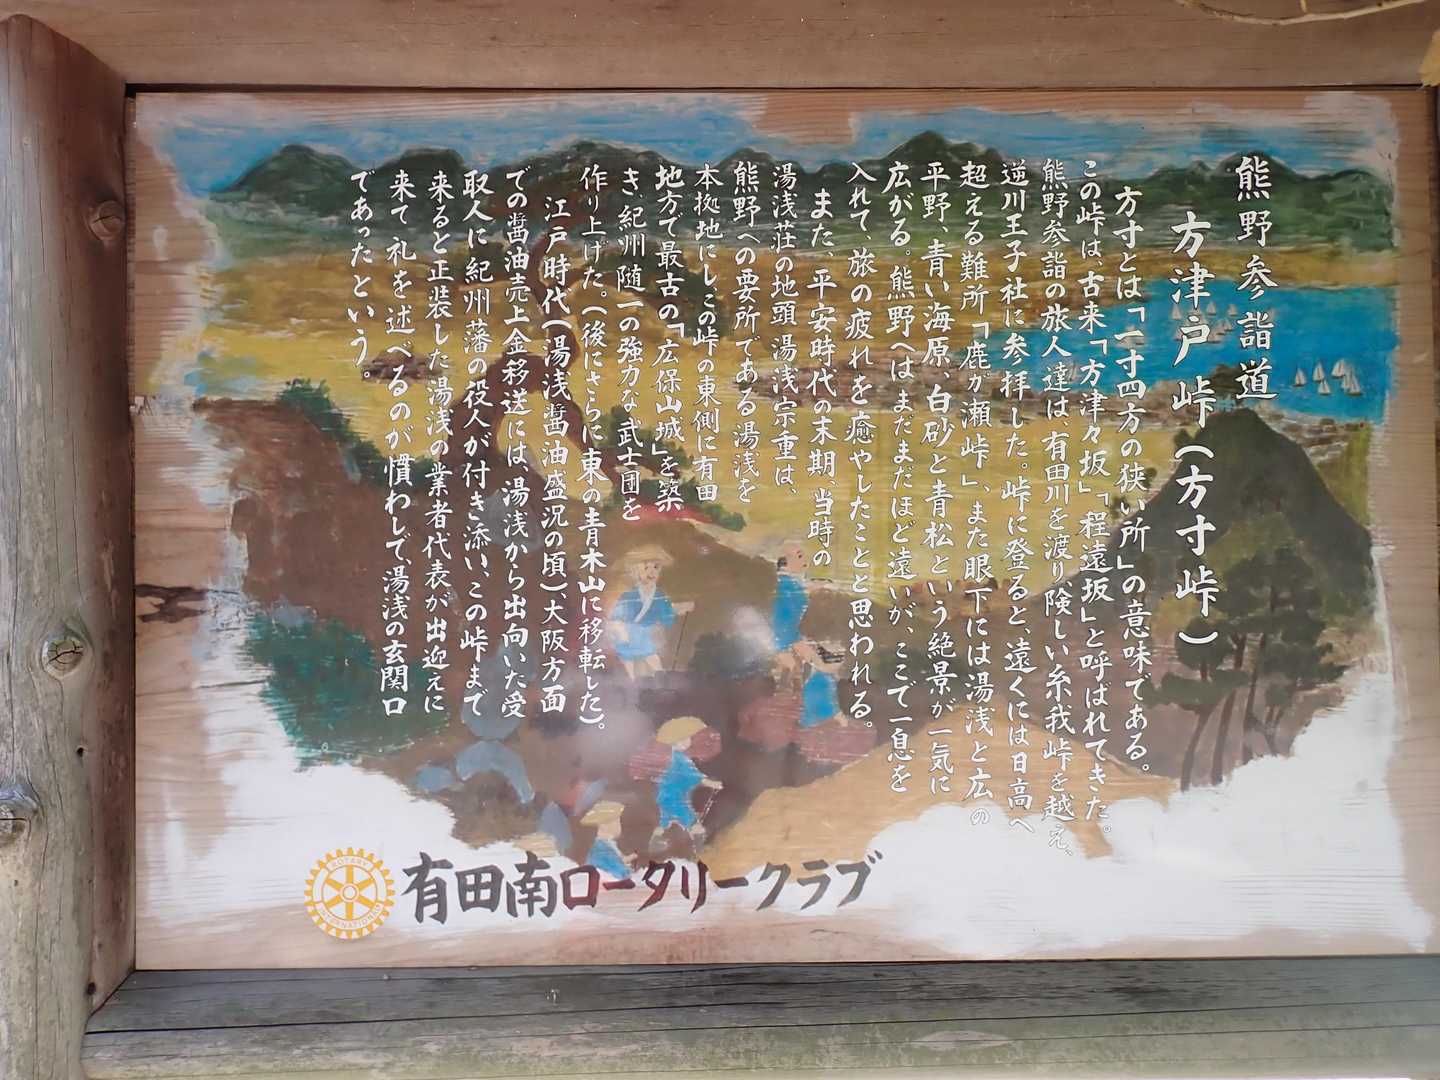 熊野参詣道
方津戸峠（方寸峠）
方寸とは「一寸四方の狭い所」の意味である。
この峠は、古来「方津々坂」「程遠坂」と呼ばれてきた。
熊野参詣の旅人達は、有田川を渡り、険しい糸我峠を越え、
逆川王子社に参拝した。峠に登ると、遠くには日高へ
超える難所「鹿が瀬峠」、また眼下には湯浅と広の
平野、青い海原、白砂と青松という絶景が一気に
広がる。熊野へはまだまだほど遠いが、ここで一息を
入れて、旅の疲れを癒やしたことと思われる。
また、平安時代の末期、当時の
湯浅荘の地頭湯浅宗重は、
熊野への要所である湯浅を
本拠地にし、この峠の東側に有田
地方で最古の「広保山城」を築
き、紀州随一の強力な武士団を
作り上げた。（後にさらに東の青木山に移転した）。
江戸時代（湯浅醬油盛況の頃）、大阪方面
での醬油売上金移送には、湯浅から出向いた受
取人に紀州藩の役人が付き添い、この峠まで
来ると正装した湯浅の業者代表が出迎えに
来て礼を述べるのが慣わしで、湯浅の玄関口
であったという。
ROTARY
INTERNATIONAL
有田南ロータリークラブ